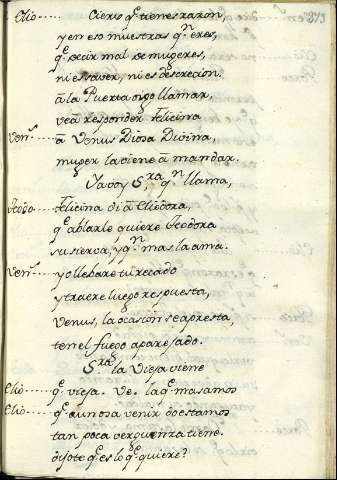 Clio..... Cierto q̃ tienes razon,
y en eso muestras q.n eres,
q.e decir mal de mugeres,
ni es saver, ni es descrecion.
â la Puerta oygo llamar,
ve â responder Felicina
Ven.s ..... â Venus Diosa Divina,
muger la viene â mandar.
Ya voy S.ra, q.n llama,
Teodo..... Felicina di â Cliodora,
q.e ablarle quiere Teodora
su sierva, y q.n mas la ama.
Ven.s ..... yo llebare tu recado
y traere luego respuesta,
Venus, la ocasion se apresta,
ten el fuego aparejado.
S.ra la Vieja viene
Clio..... q.e vieja. Ve. la q.e mas amos
Clio..... q.e aun osa venir do estamos
tan poca verguenza tiene.
dijote q.e es lo q.e quiere?